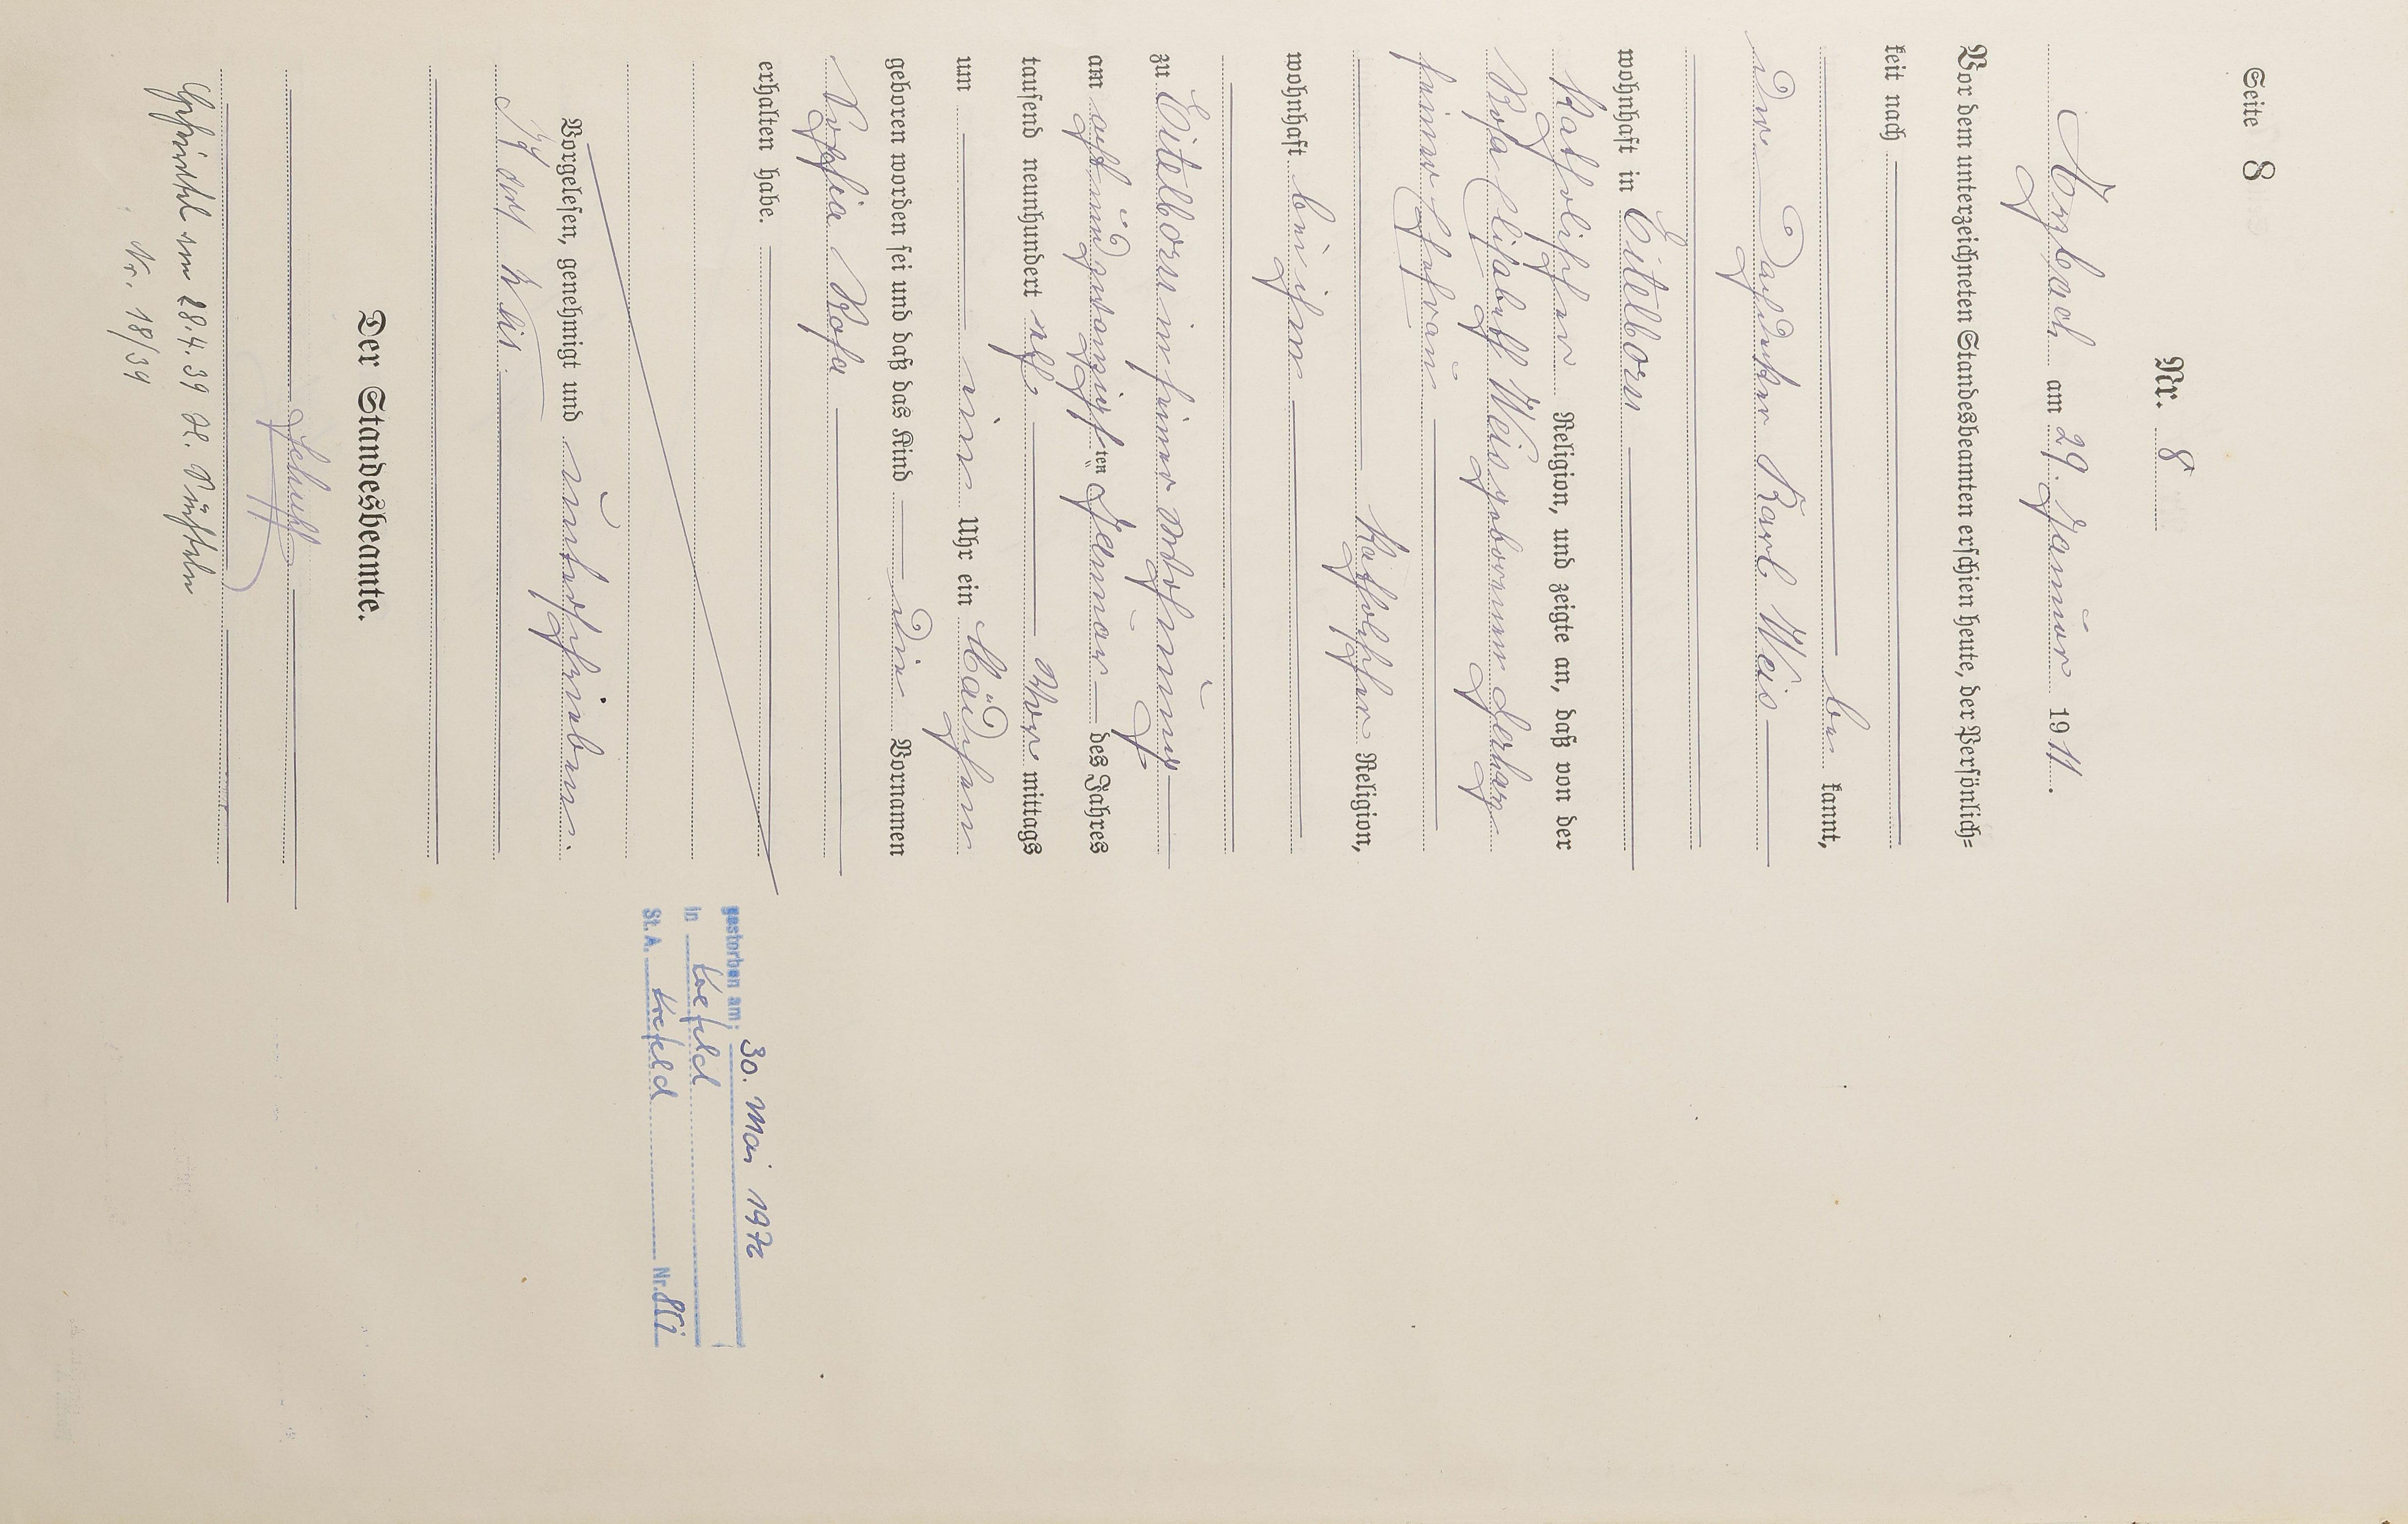 Seite 8
Nr. 8
Arzbach am 29. Januar 1911.
Vor dem unterzeichneten Standesbeamten erschien heute, der Persönlich=
keit nach
be kannt,
der Dachdecker Karl Weis
wohnhaft in Eitelborn
katholischer Religion, und zeigte an, daß von der
Rosa Elisabeth Weis geborenen Gerharz
seiner Ehefrau
katholischer Religion,
wohnhaft bei ihm
zu Eitelborn in seiner Wohnung
am achtundzwanzigsten Januar des Jahres
tausend neunhundert elf Vor mittags
um ein Uhr ein Mädchen
geboren worden sei und daß das Kind die Vornamen
Sophia Rosa
erhalten habe.
Vorgelesen, genehmigt und unterschrieben.
Karl Weis
Der Standesbeamte.
Geheiratet am 28.4.39 St. A.
Nr. 18/39
gestorben am: 30. Mai 1972
in Krefeld
St. A. Krefeld Nr.